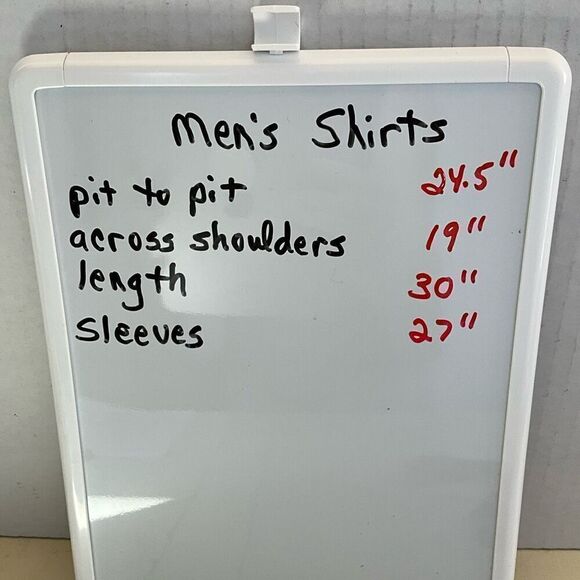 Men's Shirts
pit to pit 24.5"
across shoulders 19"
length 30"
Sleeves 27"